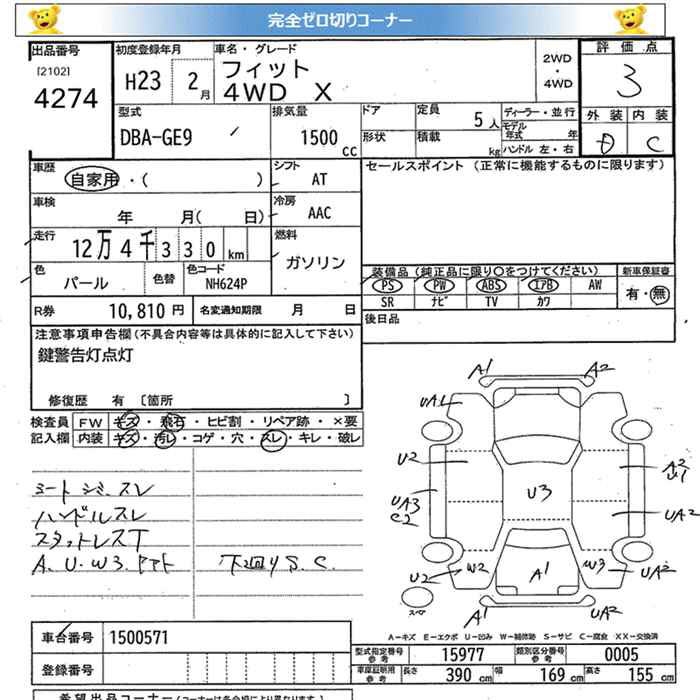 完全ゼロ切りコーナー
出品番号
[2102]
4274
初度登録年月
H23 2月
車名・グレード
フィット
4WD X
2WD
・
4WD
評価点
3
外装 内装
D C
型式
DBA-GE9
排気量
1500
CC
ドア
形状
定員
5人
積載
kg
ディーラー・並行
モデル年式 年
ハンドル 左・右
車歴
自家用・( )
シフト
AT
セールスポイント (正常に機能するものに限ります)
車検
年 月( 日)
冷房
AAC
走行
12万4千330km
燃料
ガソリン
色
パール
色替
色コード
NH624P
装備品(純正品に限り〇をつけてください)
PS PW ABS エアB AW
SR ナビ TV カワ
新車保証書
有・無
R券 10,810円
名変通知期限 月 日
後日品
注意事項申告欄(不具合内容等は具体的に記入して下さい)
鍵警告灯点灯
修復歴 有 〔箇所 〕
検査員
記入欄
FW キズ・飛石・ヒビ割・リペア跡・×要
内装 キズ・汚レ・コゲ・穴・スレ・キレ・破レ
シートシミ、スレ
ハンドルスレ
スタットレスT
A. U. W3.
下回りS.C.
A1 A2
UA1
U2
A2
U1
U3
UA3
C2
UA2
U2 W2
A1
W3 UA2
スペア
A1 UA2
A-キズ E-エクボ U-凹み W-補修跡 S-サビ C-腐食 XX-交換済
車台番号 1500571
登録番号
型式指定番号
参考
15977
類別区分番号
参考
0005
車庫証明用
参考
長さ 390 cm
幅 169 cm
高さ 155 cm
希望出品コーナー